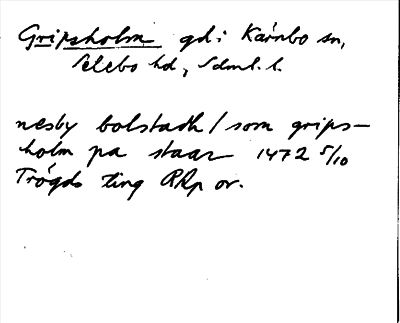 Gripsholm gd i Kärnbo sn,
Selebo hd, Sdml. l.
nesby bolstadh / som grips-
holm pa staar 1472 5/10
Trögds ting RAp or.